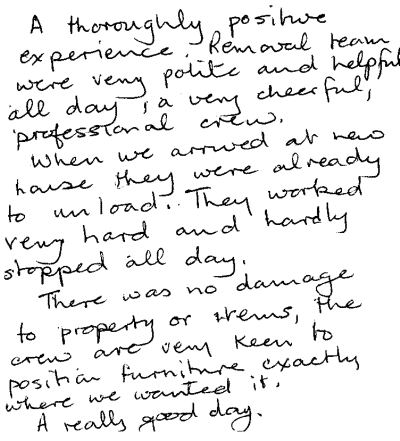 A thoroughly positive
experience. Removal team
were very polite and helpful
all day, a very cheerful,
professional crew.
When we arrived at new
house they were already
to unload. They worked
very hard and hardly
stopped all day.
There was no damage
to property or items, the
crew are very keen to
position furniture exactly
where we wanted it.
A really good day.